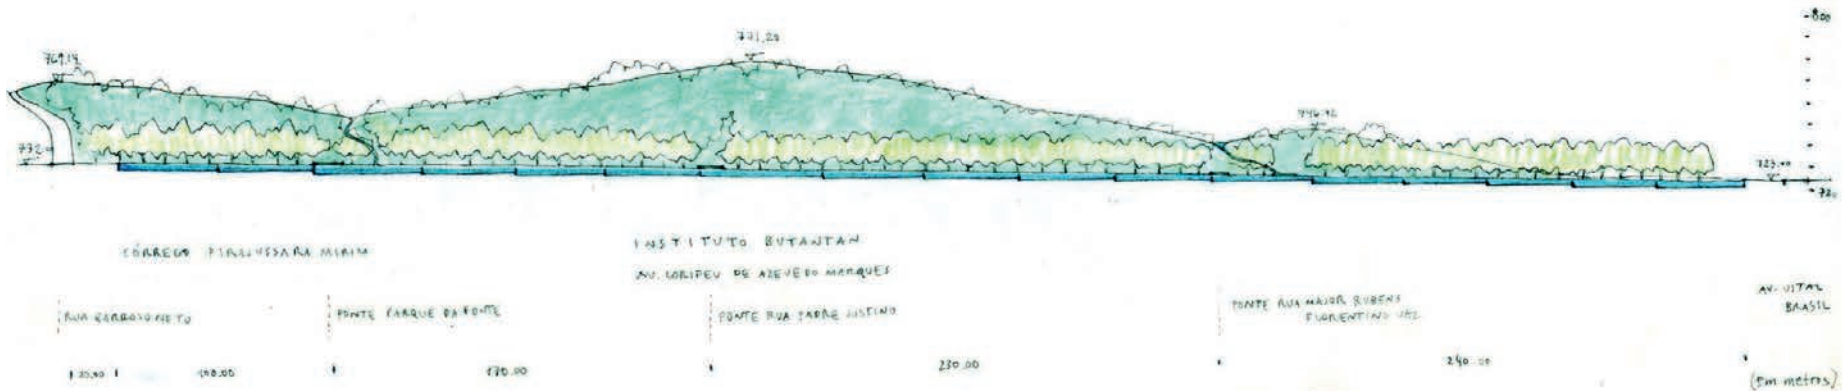 800
771,20
769.14
746.92
732
723,00
720
CÓRREGO PIRAJUSSARA MIRIM
INSTITUTO BUTANTAN
AV. CORIFEU DE AZEVEDO MARQUES
RUA BARBOSO NETO
PONTE PARQUE DA FONTE
PONTE RUA PADRE JUSTINO
PONTE RUA MAJOR RUBENS
FLORENTINO VAZ
AV. VITAL
BRASIL
20,00
100.00
170.00
230.00
240.00
(Em metros)